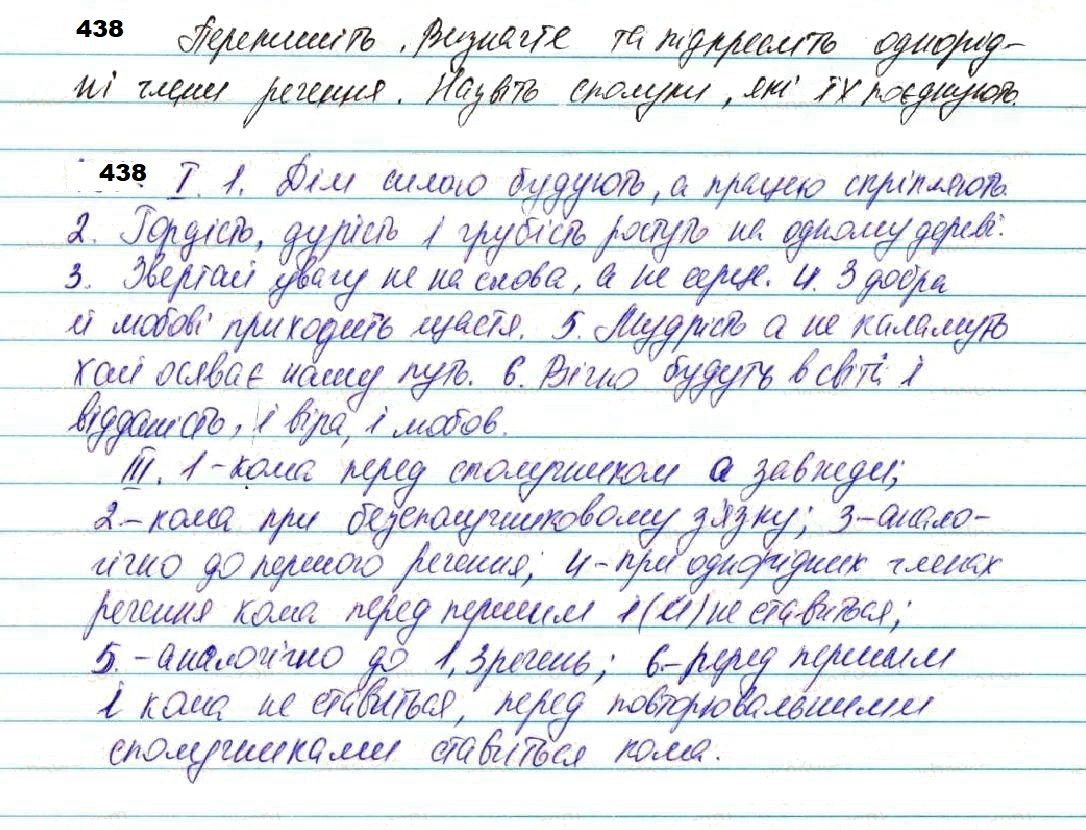 438 Перепишіть. Визначте та підкресліть однорід-
ні члени речення. Назвіть сполуки, які їх поєднують.
438 I. 1. Дім силою будують, а працею скріпляють.
2. Гордість, дурість і грубість ростуть на одному дереві.
3. Звертай увагу не на слова, а не серце. 4. З добра
й любові приходить щастя. 5. Мудрість а не каламуть
хай осяває нашу путь. 6. Вічно будуть в світі і
відданість, і віра, і любов.
III. 1-кома перед сполучником а завжди;
2-кома при безсполучниковому зв'язку; 3-анало-
гічно до першого речення; 4-при однорідних членах
речення кома перед першим і(й) не ставиться;
5.-аналогічно до 1, 3 речень; 6-перед першим
і кома не ставиться, перед повторювальними
сполучниками ставиться кома.